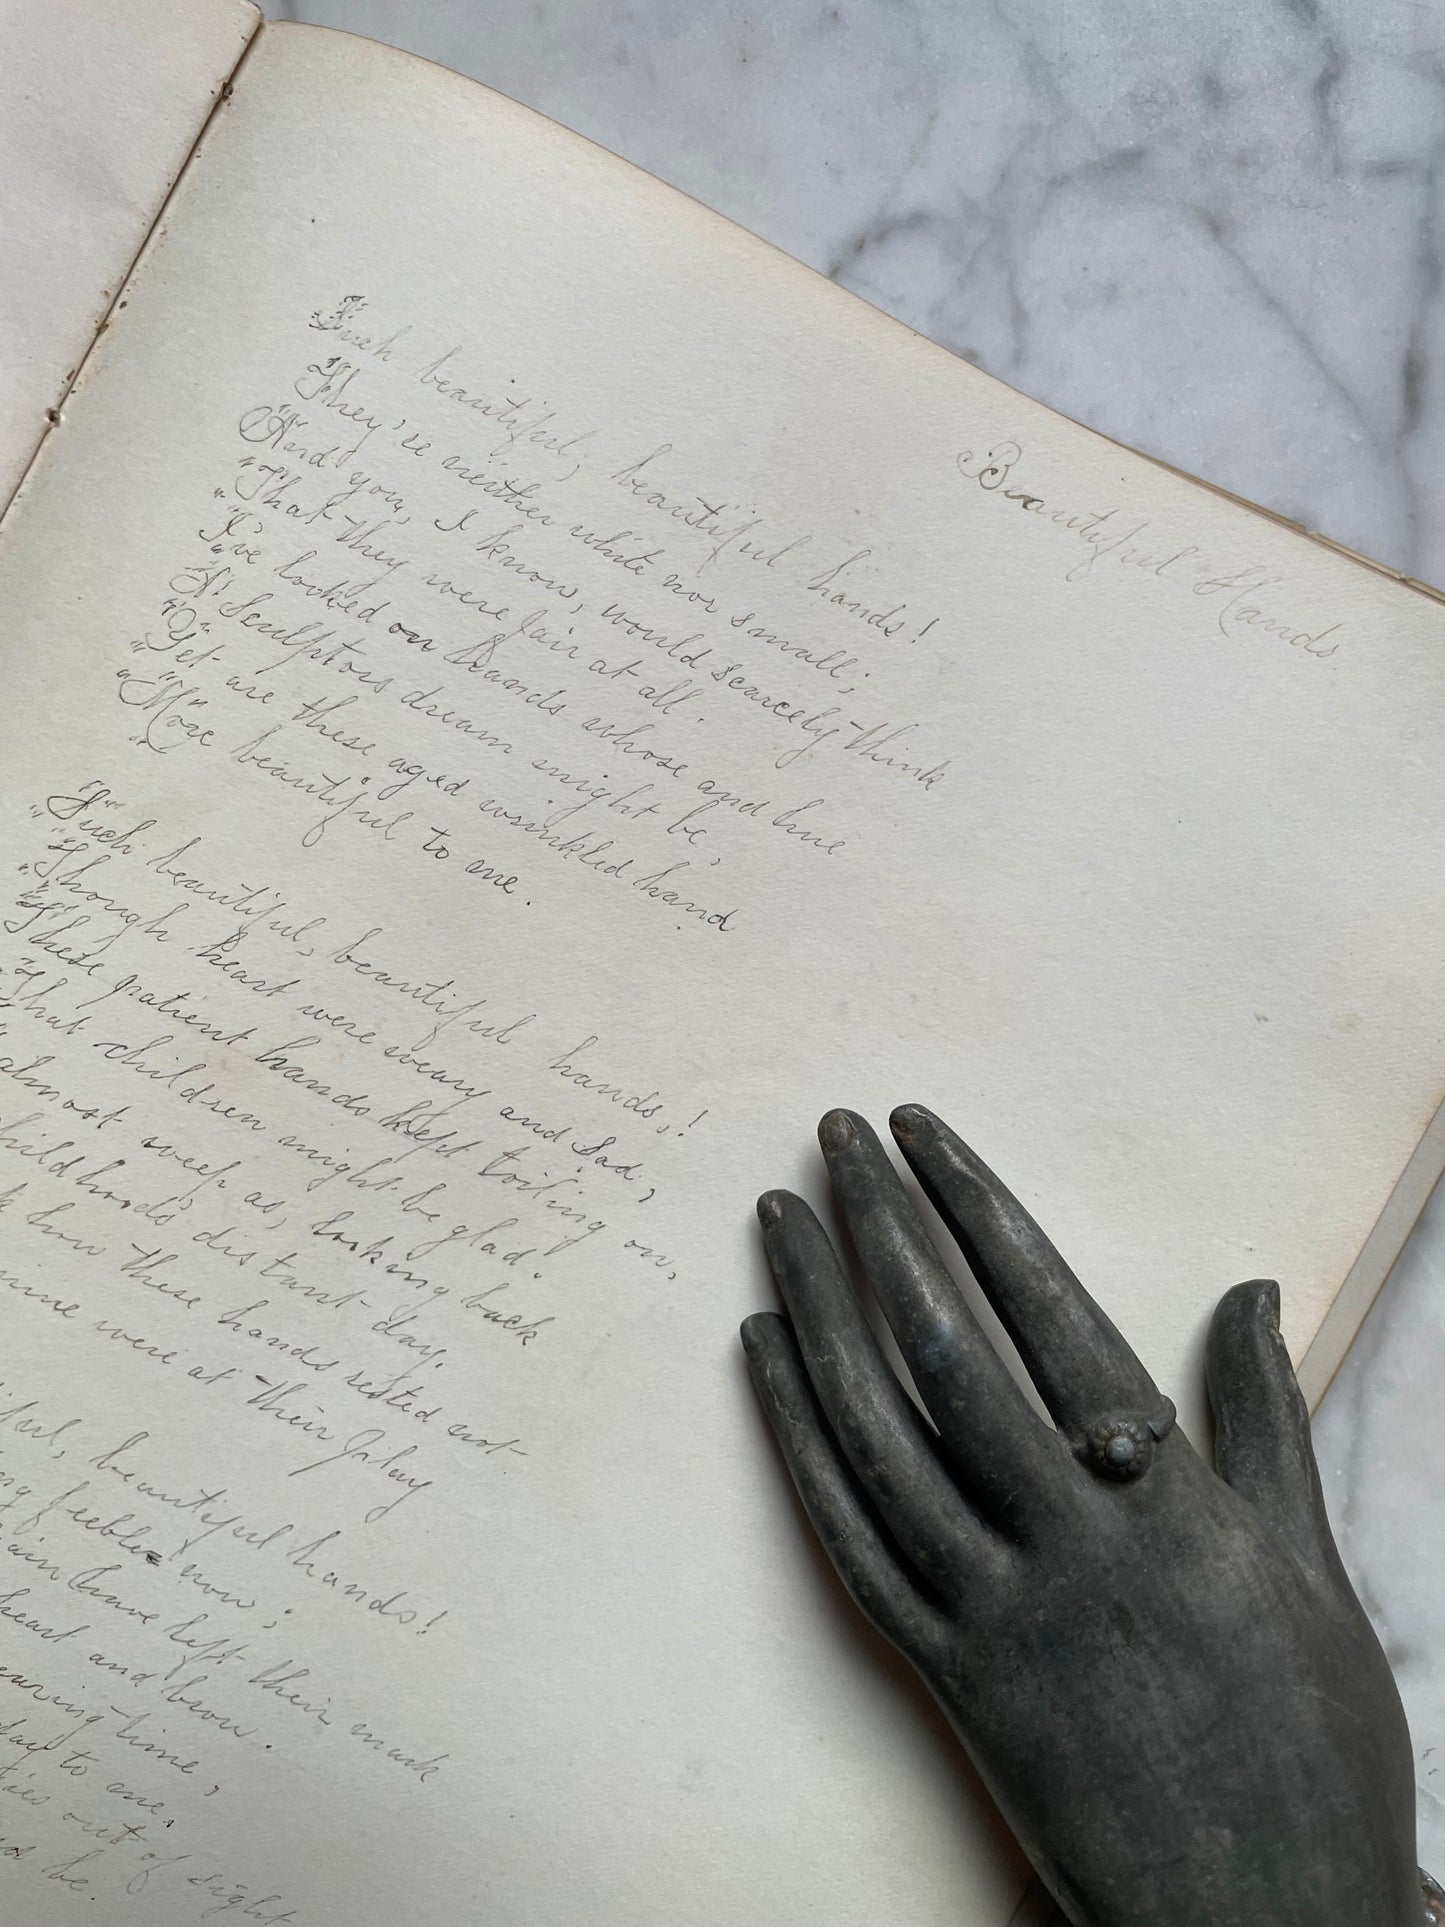 Beautiful Hands.
Such beautiful, beautiful hands!
They're neither white nor small;
And you, I know, would scarcely think
That they were fair at all.
I've looked on hands whose and hue
A Sculptors dream might be,
Yet are these aged wrinkled hand
More beautiful to me.
Such beautiful, beautiful hands!
Though heart were weary and sad,
These patient hands kept toiling on,
That children might be glad.
almost weep as, looking back
childhood's distant day,
how these hands rested not
mine were at their play
beautiful hands!
feeble now;
have left their mark
heart and brow.
time,
to me,
out of sight
be.